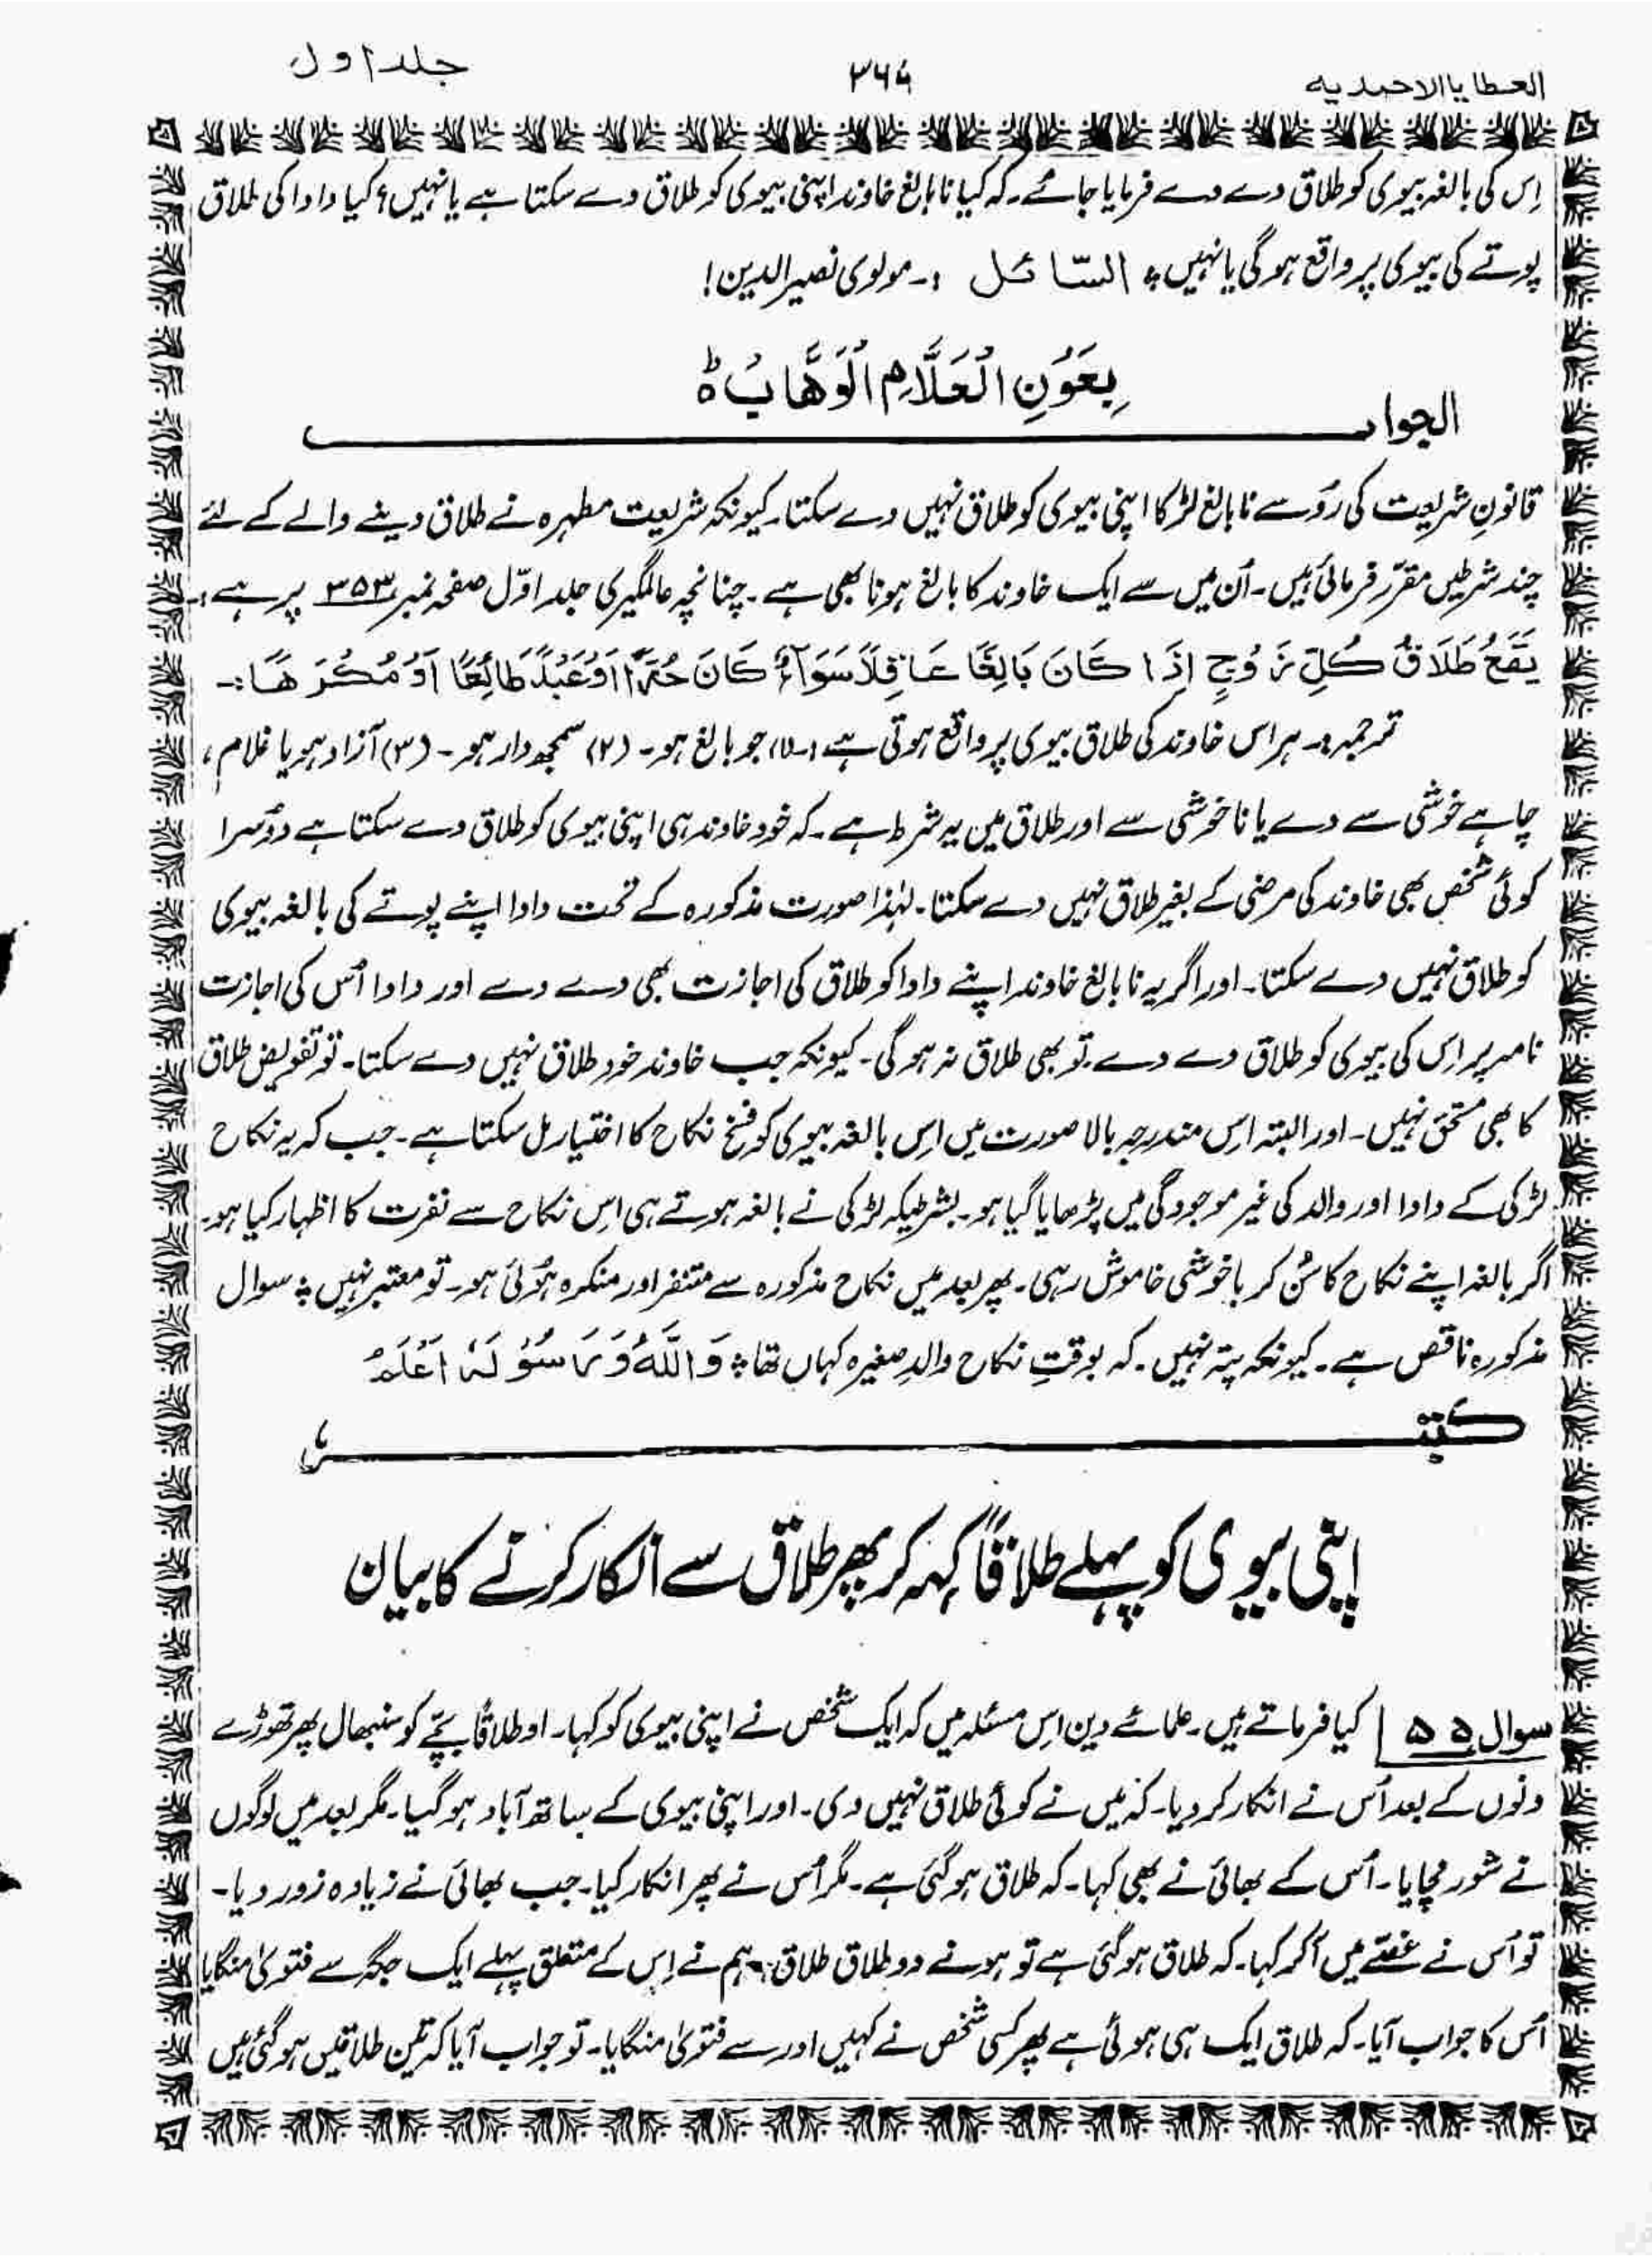 العطایا الاحمدیہ ۳۶۴ جلد اول
اِس کی بالغہ بیوی کو طلاق دے دے فرمایا جائے۔ کہ کیا نابالغ خاوند اپنی بیوی کو طلاق دے سکتا ہے یا نہیں؟ کیا دادا کی طلاق
پوتے کی بیوی پر واقع ہوگی یا نہیں؟ السّائل :۔ مولوی نصیر الدین!
بِعَوْنِ الْعَلَّامِ الْوَهَّابُ ہ
الجواب
قانونِ شریعت کی رُو سے نابالغ لڑکا اپنی بیوی کو طلاق نہیں دے سکتا۔ کیونکہ شریعت مطہرہ نے طلاق دینے والے کے لئے
چند شرطیں مقرّر فرمائی ہیں۔ اُن میں سے ایک خاوند کا بالغ ہونا بھی ہے۔ چنانچہ عالمگیری جلد اوّل صفحہ نمبر ۳۵۳ پر ہے:۔
یَقَعُ طَلَاقُ کُلِّ زَوْجٍ اِذَا کَانَ بَالِغًا عَاقِلًا سَوَآءٌ کَانَ حُرًّا اَوْعَبْدًا طَائِعًا اَوْ مُکْرَھًا:۔
ترجمہ:۔ ہر اس خاوند کی طلاق بیوی پر واقع ہوتی ہے:۔ (۱) جو بالغ ہو۔ (۲) سمجھ دار ہو۔ (۳) آزاد ہو یا غلام،
چاہے خوشی سے دے یا ناخوشی سے اور طلاق میں یہ شرط ہے۔ کہ خود خاوند ہی اپنی بیوی کو طلاق دے سکتا ہے دوُسرا
کوئی شخص بھی خاوند کی مرضی کے بغیر طلاق نہیں دے سکتا۔ لہٰذا صورت مذکورہ کے تحت دادا اپنے پوتے کی بالغہ بیوی
کو طلاق نہیں دے سکتا۔ اور اگر یہ نابالغ خاوند اپنے دادا کو طلاق کی اجازت بھی دے دے اور دادا اُس کی اجازت
نامہ پر اِس کی بیوی کو طلاق دے دے۔ تو بھی طلاق نہ ہوگی۔ کیونکہ جب خاوند خود طلاق نہیں دے سکتا۔ تو تفویض طلاق
کا بھی مستحق نہیں۔ اور البتہ اِس مندرجہ بالا صورت میں اِس بالغہ بیوی کو فسخ نکاح کا اختیار مل سکتا ہے۔ جب کہ یہ نکاح
لڑکی کے دادا اور والد کی غیر موجودگی میں پڑھایا گیا ہو۔ بشرطیکہ لڑکی نے بالغہ ہوتے ہی اس نکاح سے نفرت کا اظہار کیا ہو۔
اگر بالغہ اپنے نکاح کا سُن کر باخوشی خاموش رہی۔ پھر بعد میں نکاح مذکورہ سے متنفر اور منکرہ ہُوئی ہو۔ تو معتبر نہیں ؞ سوال
مذکورہ ناقص ہے۔ کیونکہ پتہ نہیں۔ کہ بوقتِ نکاح والدِ صغیرہ کہاں تھا ؞ وَاللّٰهُ وَرَسُوْلَہٗ اَعْلَمُ
کتبہ
اپنی بیوی کو پہلے طلاقاً کہہ کر پھر طلاق سے انکار کرنے کا بیان
سوال ۵۵ کیا فرماتے ہیں۔ علمائے دین اِس مسئلہ میں کہ ایک شخص نے اپنی بیوی کو کہا۔ او طلاقاً بچّے کو سنبھال پھر تھوڑے
دنوں کے بعد اُس نے انکار کر دیا۔ کہ میں نے کوئی طلاق نہیں دی۔ اور اپنی بیوی کے ساتھ آباد ہو گیا۔ مگر بعد میں لوگوں
نے شور مچایا۔ اُس کے بھائی نے بھی کہا۔ کہ طلاق ہو گئی ہے۔ مگر اُس نے پھر انکار کیا۔ جب بھائی نے زیادہ زور دیا۔
تو اُس نے غصّے میں آکر کہا۔ کہ طلاق ہوگئی ہے تو ہونے دو طلاق طلاق ؞ ہم نے اِس کے متعلق پہلے ایک جگہ سے فتویٰ منگایا
اُس کا جواب آیا۔ کہ طلاق ایک ہی ہوئی ہے پھر کسی شخص نے کہیں اور سے فتویٰ منگایا۔ تو جواب آیا کہ تین طلاقیں ہوگئی ہیں